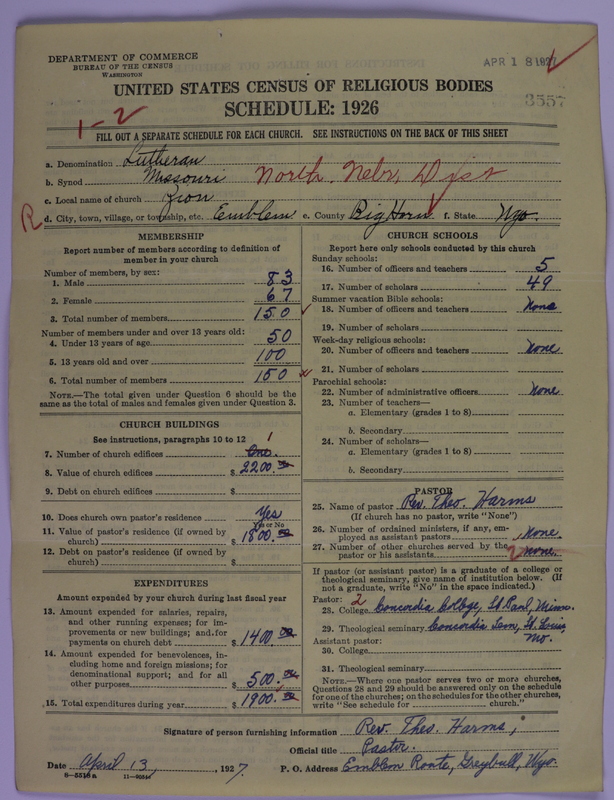 DEPARTMENT OF COMMERCE
BUREAU OF THE CENSUS
WASHINGTON
APR 18 1927
UNITED STATES CENSUS OF RELIGIOUS BODIES
SCHEDULE: 1926
3557
1-2
FILL OUT A SEPARATE SCHEDULE FOR EACH CHURCH. SEE INSTRUCTIONS ON THE BACK OF THIS SHEET
a. Denomination Lutheran
b. Synod Missouri North. Nebr. Dist
c. Local name of church Zion
R d. City, town, village, or township, etc. Emblem e. County Big Horn f. State Wyo.
MEMBERSHIP
Report number of members according to definition of
member in your church
Number of members, by sex:
1. Male 83
2. Female 67
3. Total number of members 150
Number of members under and over 13 years old:
4. Under 13 years of age 50
5. 13 years old and over 100
6. Total number of members 150
NOTE.—The total given under Question 6 should be the
same as the total of males and females given under Question 3.
CHURCH BUILDINGS
See instructions, paragraphs 10 to 12
7. Number of church edifices One. 1
8. Value of church edifices $ 2200.00
9. Debt on church edifices $
10. Does church own pastor's residence Yes
Yes or No
11. Value of pastor's residence (if owned by
church) $ 1800.00
12. Debt on pastor's residence (if owned by
church) $
EXPENDITURES
Amount expended by your church during last fiscal year
13. Amount expended for salaries, repairs,
and other running expenses; for im-
provements or new buildings; and for
payments on church debt $ 1400.00
14. Amount expended for benevolences, in-
cluding home and foreign missions; for
denominational support; and for all
other purposes $ 500.00
15. Total expenditures during year $ 1900.00
CHURCH SCHOOLS
Report here only schools conducted by this church
Sunday schools:
16. Number of officers and teachers 5
17. Number of scholars 49
Summer vacation Bible schools:
18. Number of officers and teachers None
19. Number of scholars
Week-day religious schools:
20. Number of officers and teachers None
21. Number of scholars
Parochial schools:
22. Number of administrative officers None
23. Number of teachers—
a. Elementary (grades 1 to 8)
b. Secondary
24. Number of scholars—
a. Elementary (grades 1 to 8)
b. Secondary
PASTOR
25. Name of pastor Rev. Theo. Harms
(If church has no pastor, write "None")
26. Number of ordained ministers, if any, em-
ployed as assistant pastors None
27. Number of other churches served by the
pastor or his assistants 2 none.
If pastor (or assistant pastor) is a graduate of a college or
theological seminary, give name of institution below. (If
not a graduate, write "No" in the space indicated.)
Pastor: 2
28. College Concordia College, St Paul, Minn.
29. Theological seminary Concordia Sem, St. Louis,
Mo.
Assistant pastor:
30. College
31. Theological seminary
NOTE.—Where one pastor serves two or more churches,
Questions 28 and 29 should be answered only on the schedule
for one of the churches; on the schedules for the other churches,
write "See schedule for church."
Signature of person furnishing information Rev. Theo. Harms,
Official title Pastor.
Date April 13, 1927. P. O. Address Emblem Route, Greybull, Wyo.